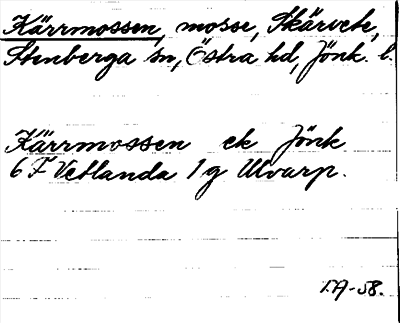 Kärrmossen, mosse, Skärvete,
Stenberga sn, Östra hd, Jönk. l.
Kärrmossen ek Jönk
6 F Vetlanda 1 g Ulvarp.
I.A-58.